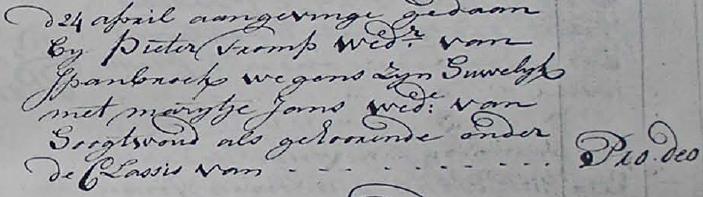 d 24 april aangevinge gedaan
by Pieter Tromp wedr: van
Spanbroek wegens zyn Huwelyk
met marytje Jans wede: van
Hoogtwoud als gehoorende onder
de Classis van - - - - - - - - - - Pro deo